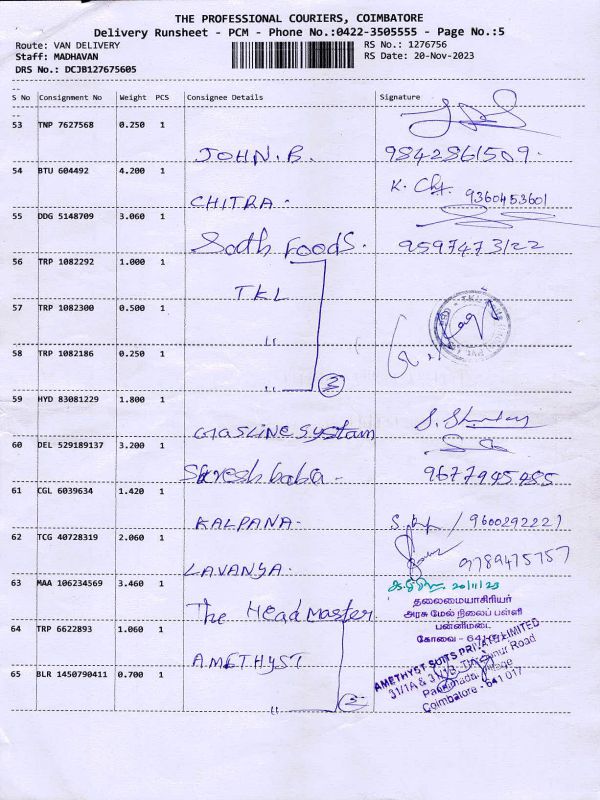 THE PROFESSIONAL COURIERS, COIMBATORE
Delivery Runsheet - PCM - Phone No.:0422-3505555 - Page No.:5
Route: VAN DELIVERY RS No.: 1276756
Staff: MADHAVAN RS Date: 20-Nov-2023
DRS No.: DCJB127675605
S No Consignment No Weight PCS Consignee Details Signature
53 TNP 7627568 0.250 1
JOHN.B. 9842861509.
54 BTU 604492 4.200 1
CHITRA. 9360453601
55 DDG 5148709 3.060 1
Foods. 9597473122
56 TRP 1082292 1.000 1
TKL
57 TRP 1082300 0.500 1
"
58 TRP 1082186 0.250 1
" 3
59 HYD 83081229 1.800 1
Gasline system
60 DEL 529189137 3.200 1
Suresh baba - 9677945485
61 CGL 6039634 1.420 1
KALPANA. 9600292227
62 TCG 40728319 2.060 1
LAVANYA. 9789475757
63 MAA 106234569 3.460 1
20/11/23
தலைமையாசிரியர்
The Head Master அரசு மேல் நிலைப் பள்ளி
பன்னிமடை
64 TRP 6622893 1.060 1
கோவை - 641
AMETHYST
AMETHYST SUITS PRIVATE LIMITED
31/1A & 31/1B, Road
65 BLR 1450790411 0.700 1
Village
Coimbatore - 641 017
" 2